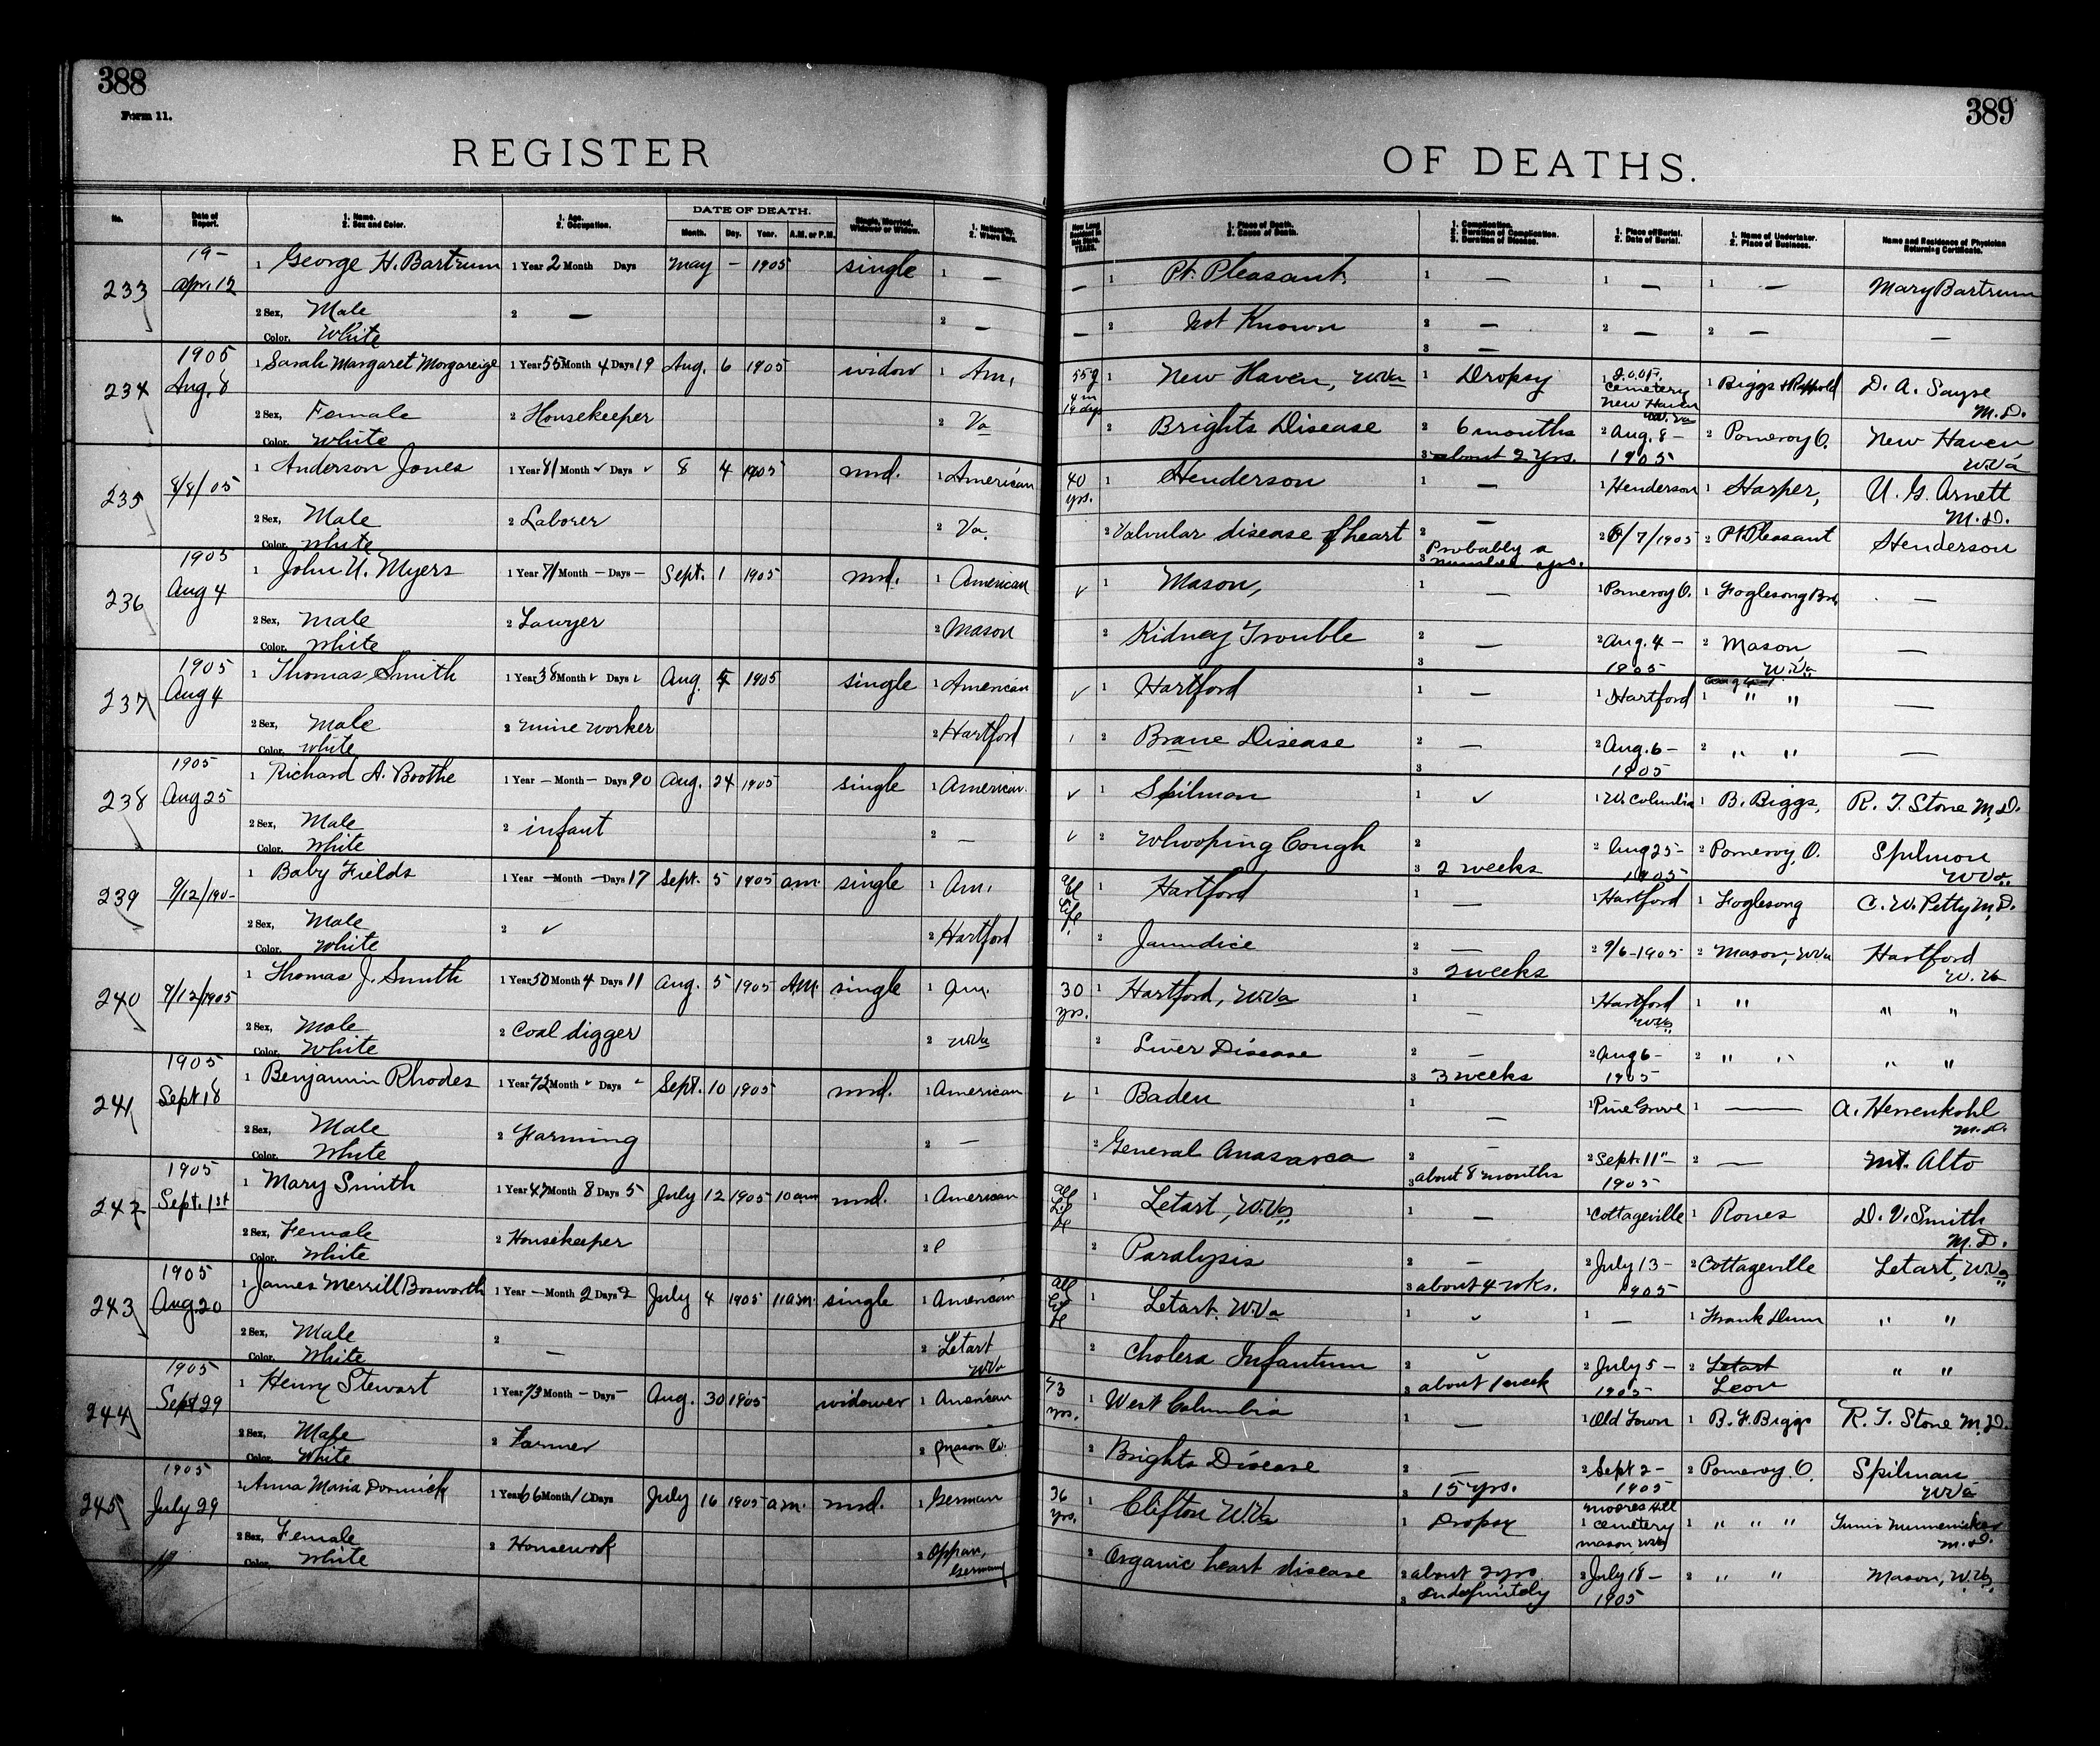 388
Form 11.
REGISTER
389
OF DEATHS.
No.
Date of Report.
1. Name.
2. Sex and Color.
1. Age.
2. Occupation.
DATE OF DEATH.
Month. Day. Year. A.M. or P.M.
Single, Married, Widower or Widow.
1. Nationality.
2. Where Born.
How Long Resident in this State. YEARS.
1. Place of Death.
2. Cause of Death.
1. Complication.
2. Duration of Complication.
3. Duration of Disease.
1. Place of Burial.
2. Date of Burial.
1. Name of Undertaker.
2. Place of Business.
Name and Residence of Physician Returning Certificate.
233 19- Apr. 12 1 George H. Bartrum 1 Year 2 Month Days May - 1905 single 1 — — 1 Pt. Pleasant 1 — 1 — 1 — Mary Bartrum
2 Sex, Male 2 — 2 — — 2 Not Known 2 — 2 — 2 — —
Color. White 3 —
234 1905 Aug. 8 1 Sarah Margaret Morgareige 1 Year 55 Month 4 Days 19 Aug. 6 1905 widow 1 Am. 55 y 4 m 19 days 1 New Haven, W.Va 1 Dropsy 1 I.O.O.F. Cemetery New Haven W.Va 1 Biggs & Rappold D. A. Sayre M.D.
2 Sex, Female 2 Housekeeper 2 Va 2 Brights Disease 2 6 months 2 Aug. 8- 1905 2 Pomeroy O. New Haven W.Va
Color. White 3 about 2 yrs.
235 8/8/05 1 Anderson Jones 1 Year 81 Month ✓ Days ✓ 8 4 1905 md. 1 American 40 yrs. 1 Henderson 1 — 1 Henderson 1 Harper, U. G. Arnett M.D.
2 Sex, Male 2 Laborer 2 Va. 2 Valvular disease of heart 2 — 2 6/7/1905 2 Pt Pleasant Henderson
Color. White 3 Probably a number yrs.
236 1905 Aug 4 1 John U. Myers 1 Year 71 Month — Days — Sept. 1 1905 md. 1 American ✓ 1 Mason, 1 — 1 Pomeroy O. 1 Foglesong Bro. —
2 Sex, Male 2 Lawyer 2 Mason 2 Kidney Trouble 2 — 2 Aug. 4- 1905 2 Mason W.Va —
Color. White 3
237 1905 Aug 4 1 Thomas Smith 1 Year 38 Month ✓ Days ✓ Aug. 4 1905 single 1 American ✓ 1 Hartford 1 — 1 Hartford 1 " " —
2 Sex, Male 2 mine worker 2 Hartford 2 Brane Disease 2 — 2 Aug. 6- 1905 2 " " —
Color. White 3
238 1905 Aug 25 1 Richard A. Boothe 1 Year — Month — Days 90 Aug. 24 1905 single 1 American ✓ 1 Spilman 1 ✓ 1 W. Columbia 1 B. Biggs, R. T. Stone M.D.
2 Sex, Male 2 infant 2 — ✓ 2 Whooping Cough 2 2 Aug 25- 1905 2 Pomeroy, O. Spilman W.Va.
Color. White 3 2 weeks
239 9/12/190- 1 Baby Fields 1 Year — Month — Days 17 Sept. 5 1905 am. single 1 Am. all Life 1 Hartford 1 — 1 Hartford 1 Foglesong C. W. Petty M.D.
2 Sex, Male 2 ✓ 2 Hartford 2 Jaundice 2 — 2 9/6-1905 2 Mason, W.Va Hartford W.Va
Color. White 3 2 weeks
240 9/12/1905 1 Thomas J. Smith 1 Year 50 Month 4 Days 11 Aug. 5 1905 A.M. single 1 Am. 30 yrs. 1 Hartford, W.Va 1 — 1 Hartford W.Va 1 " " "
2 Sex, Male 2 Coal digger 2 W.Va 2 Liver Disease 2 — 2 Aug 6- 1905 2 " " " "
Color. White 3 3 weeks
241 1905 Sept 18 1 Benjamin Rhodes 1 Year 72 Month ✓ Days ✓ Sept. 10 1905 md. 1 American ✓ 1 Baden 1 — 1 Pine Grove 1 — A. Herrenkohl M.D.
2 Sex, Male 2 Farming 2 — 2 General Anasarca 2 — 2 Sept. 11" 1905 2 — Mt. Alto
Color. White 3 about 8 months
242 1905 Sept. 1st 1 Mary Smith 1 Year 47 Month 8 Days 5 July 12 1905 10 am md. 1 American all Life 1 Letart, W.Va 1 — 1 Cottageville 1 Rones D. V. Smith M.D.
2 Sex, Female 2 Housekeeper 2 2 Paralysis 2 — 2 July 13- 1905 2 Cottageville Letart, W.Va
Color. White 3 about 4 wks.
243 1905 Aug. 20 1 James Merrill Bosworth 1 Year — Month 2 Days 2 July 4 1905 11 a.m. single 1 American all Life 1 Letart W.Va 1 ✓ 1 — 1 Frank Dunn " "
2 Sex, Male 2 — 2 Letart W.Va 2 Cholera Infantum 2 ✓ 2 July 5- 1905 2 Letart Leon " "
Color. White 3 about 1 week
244 1905 Sept 29 1 Henry Stewart 1 Year 73 Month — Days — Aug. 30 1905 widower 1 American 73 yrs. 1 West Columbia 1 — 1 Old Town 1 B. F. Biggs R. T. Stone M.D.
2 Sex, Male 2 Farmer 2 Mason Co. 2 Brights Disease 2 — 2 Sept 2- 1905 2 Pomeroy. O. Spilman W.Va
Color. White 3 15 yrs.
245 1905 July 29 1 Anna Maria Dornick 1 Year 66 Month 10 Days July 16 1905 a.m. md. 1 German 36 yrs. 1 Clifton W.Va 1 Dropsy 1 Moores Hill Cemetery Mason W.Va 1 " " " M.D.
2 Sex, Female 2 Housework 2 Oppau, Germany 2 Organic heart disease 2 about 2 yrs. 2 July 18- 1905 2 " " Mason, W.Va.
Color. White 3 Indefinitely